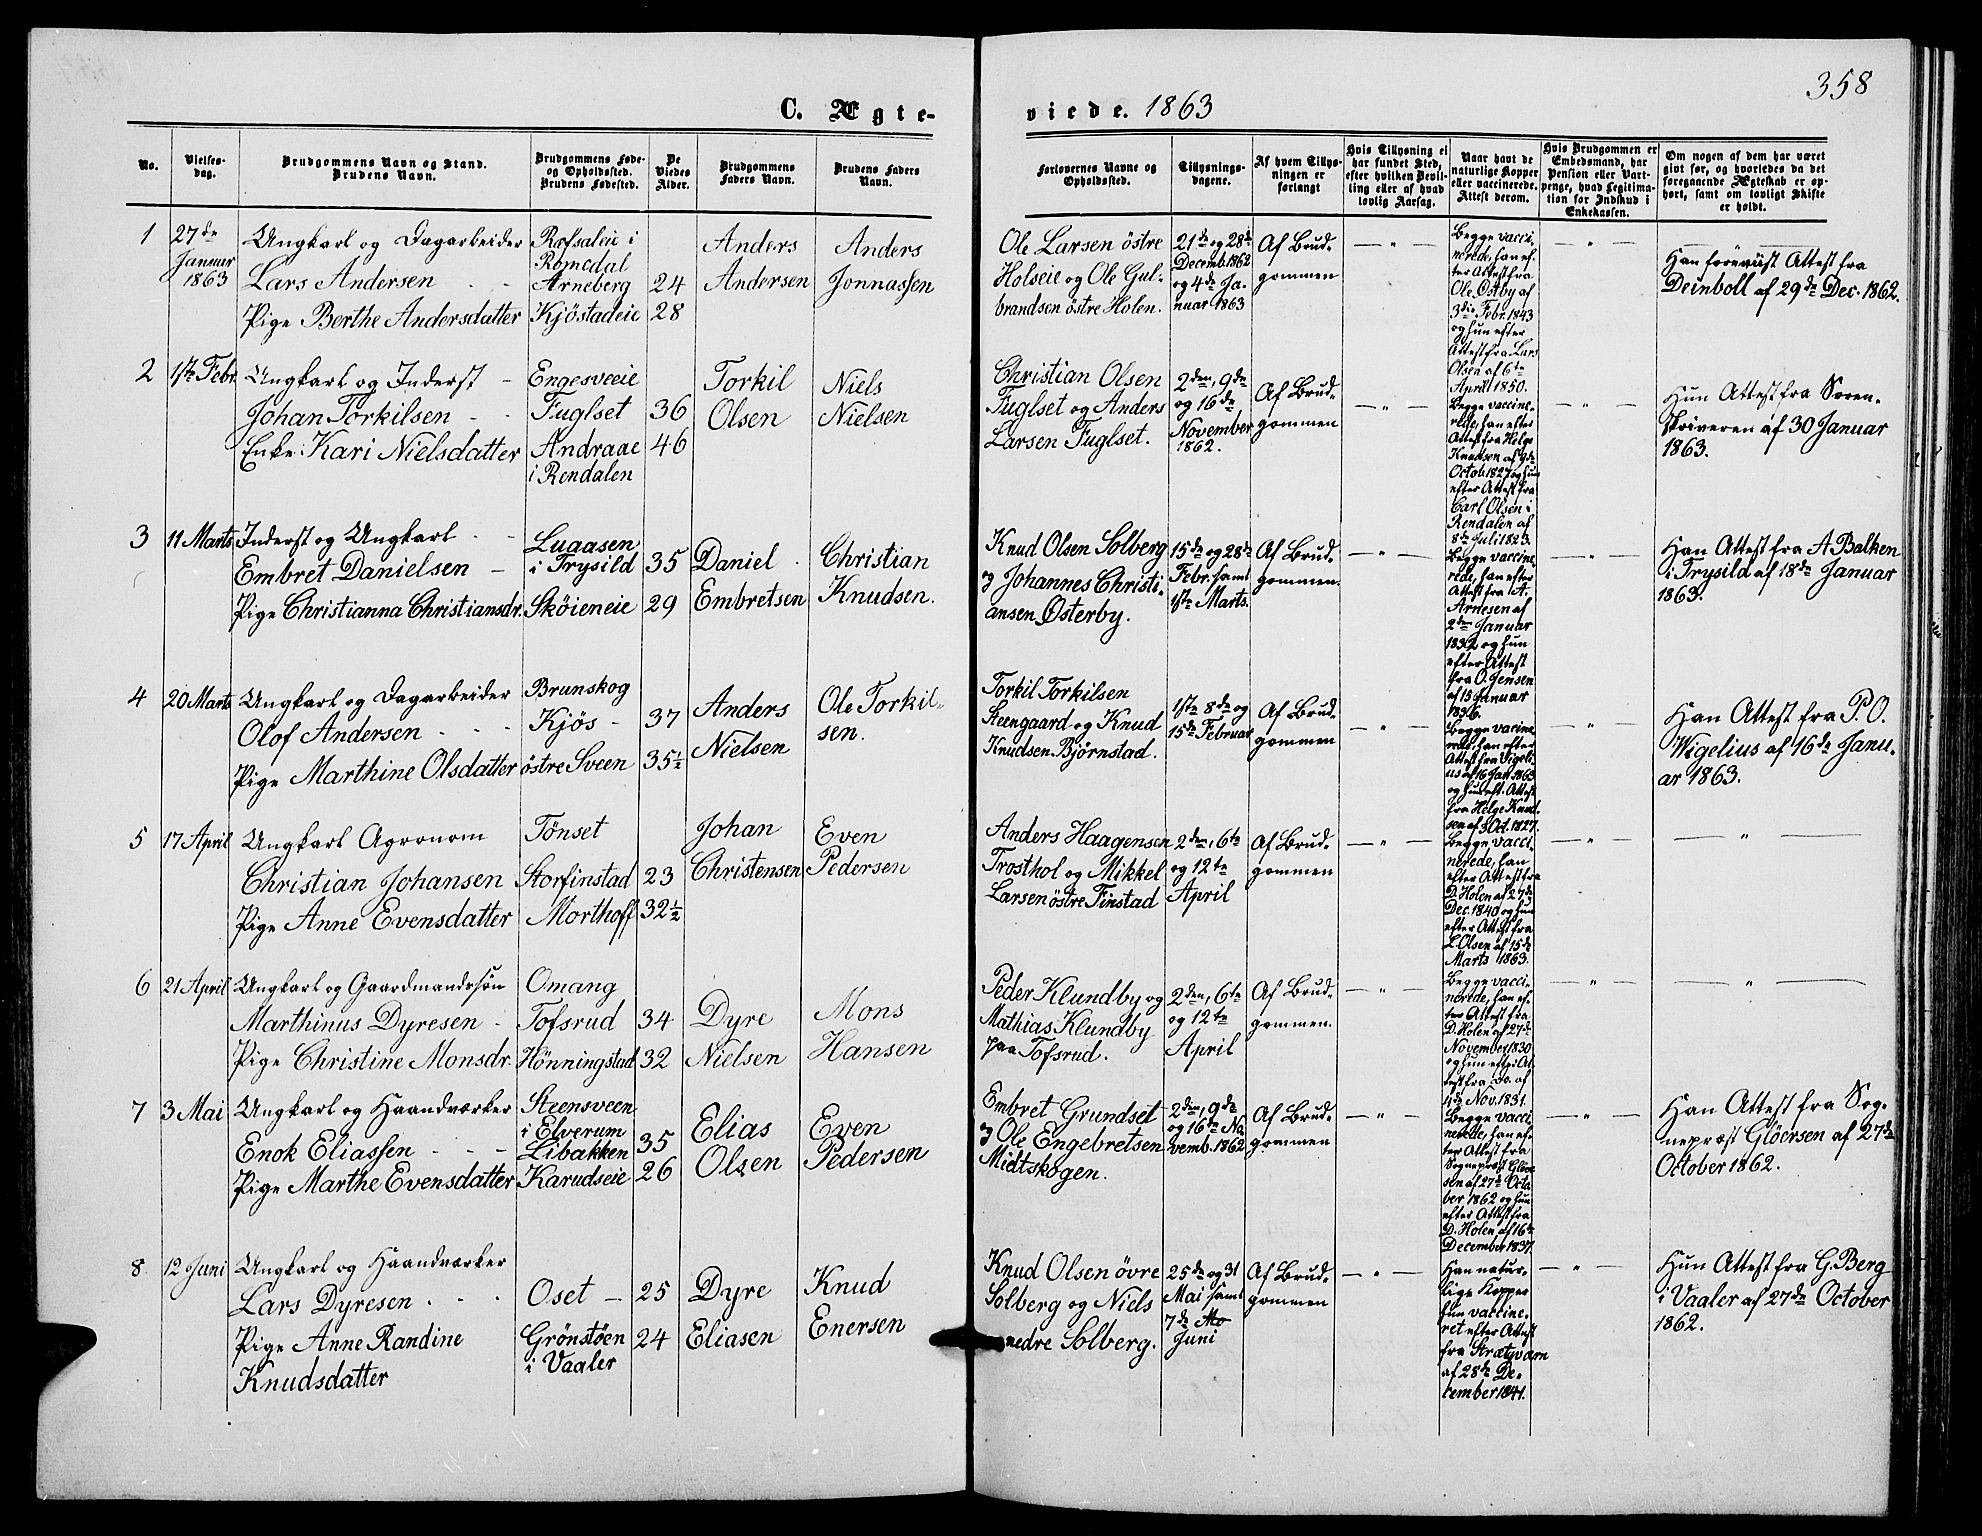 358
C. Ægte-
viede. 1863
No.
Vielses-
dag.
Brudgommens Navn og Stand.
Brudens Navn.
Brudgommens Føde-
og Opholdssted.
Brudens Fødested.
De
Viedes
Alder.
Brudgommens
Faders Navn.
Brudens Faders
Navn.
Forlovernes Navne og
Opholdssted.
Tillysnings-
dagene.
Af hvem Tillys-
ningen er
forlangt
Hvis Tillysning ei
har fundet Sted,
efter hvilken Bevil-
ling eller af hvad
lovlig Aarsag.
Naar havt de
naturlige Kopper
eller vaccinerede.
Attest derom.
Hvis Brudgommen er
Embedsmand, har
Pension eller Vart-
penge, hvad Legitima-
tion for Indskud i
Enkekassen.
Om nogen af dem har været
givt før, og hvorledes da det
foregaaende Ægteskab er op-
hørt, samt om lovligt Skifte
er holdt.
1
27de
Januar
1863
Ungkarl og Dagarbeider
Lars Andersen
Pige Berthe Andersdatter
Rofsaleie i
Romedal
Arneberg
Kjöstadeie
24
28
Anders
Andersen
Anders
Jonnassen
Ole Larsen östre
Holseie og Ole Gul-
brandsen östre Holen.
21de og 28de
Decemb. 1862
og 4de Ja-
nuar 1863
Af Brud-
gommen
Begge vacci-
nerede, han ef-
ter Attest fra
Ole Østby af
3die Febr. 1843
og hun efter
Attest fra Lars
Olsen af 6te
April 1850.
Han foreviist Attest fra
Deinboll af 29de Dec. 1862.
2
1ste Febr.
Ungkarl og Inderst
Johan Torkilsen
Enke: Kari Nielsdatter
Engesveeie
Fuglset
Andraae
i Rendalen
36
46
Torkil
Olsen
Niels
Nielsen
Christian Olsen
Fuglset og Anders
Larsen Fuglset.
2den, 9de
og 16de
November
1862.
Af Brud-
gommen
Begge vaccine-
rede, han efter
Attest fra Helge
Knudsen af 9de
Octob. 1827 og hun
efter Attest fra
Carl Olsen i
Rendalen af
8de Juli 1823.
Hun Attest fra Soren-
skriveren af 30 Januar
1863.
3
11 Marts
Inderst og Ungkarl
Embret Danielsen
Pige Christianna Christiansdr.
Lugasen
i Trysild
Sköieneie
35
29
Daniel
Embretsen
Christian
Knudsen.
Knud Olsen Solberg
og Johannes Christi-
ansen Østerby.
15de og 28de
Febr. samt
1ste Marts.
Af Brud-
gommen.
Begge vaccine-
rede, han efter
Attest fra A.
Arnesen af
2den Januar
1832 og hun
efter Attest
fra O. Jensen
af 15 Januar
1836.
Han Attest fra A Balken
i Trysild af 18de Januar
1863.
4
20 Marts
Ungkarl og Dagarbeider
Olof Andersen
Pige Marthine Olsdatter
Brunskog
Kjös
östre Sveen
37
35½
Anders
Nielsen
Ole Torkil-
sen.
Torkil Torkilsen
Steengaard og Knud
Knudsen Bjørnstad.
1ste 8de og
15de Februar
Af Brud-
gommen
Begge vaccine-
rede, han efter
Attest fra Vigeli-
us af 16 Jan. 1863
og hun eft. Attest
fra Helge Knud-
sen af 3 Oct. 1827.
Han Attest fra P.O.
Wigelius af 16de Janu-
ar 1863.
5
17 April
Ungkarl Agronom
Christian Johansen
Pige Anne Evensdatter
Tönset
Storfinstad
Morthoff
23
32½
Johan
Christensen
Even
Pedersen
Anders Haagensen
Trosthol og Mikkel
Larsen östre Finstad
2den, 6te
og 12te
April
Af Brud-
gommen
Begge vacci-
nerede, han
efter Attest fra
D. Holen af 27de
Dec. 1840 og hun
efter Attest fra
L. Olsen af 15de
Marts 1863.
6
21 April
Ungkarl og Gaardmandssön
Marthinus Dyresen
Pige Christine Monsdr.
Omang
Tofsrud
Hönningstad
34
32
Dyre
Nielsen
Mons
Hansen
Peder Klundby og
Mathias Klundby
paa Tofsrud.
2den, 6te
og 12te
April
Af Brud-
gommen.
Begge vacci-
nerede, han ef-
ter Attest fra
D. Holen af 27de
November 1830
og hun efter At-
test fra Do. af
4de Nov. 1831.
7
3 Mai
Ungkarl og Haandværker
Enok Eliassen
Pige Marthe Evensdatter
Steensveen
i Elverum
Libakken
Karudseie
35
26
Elias
Olsen
Even
Pedersen
Embret Grundset
og Ole Engebretsen
Midtskogen.
2den, 9de
og 16te No-
vemb. 1862
Af Brud-
gommen
Begge vacci-
nerede, han ef-
ter Attest fra
Sogneprest Glöer-
sen af 27de Octo-
ber 1862 og hun
efter Attest fra
D. Holen af 16de
December 1837.
Han Attest fra Sog-
neprest Glöersen af 27de
October 1862.
8
12 Juni
Ungkarl og Haandværker
Lars Dyresen
Pige Anne Randine
Knudsdatter
Oset
Grönstöen
i Vaaler
25
24
Dyre
Eliasen
Knud
Enersen
Knud Olsen övre
Solberg og Niels
nedre Solberg.
25de og 31
Mai samt
7de Mo
Juni
Af Brud-
gommen
Han natur-
lige Kopper
hun vaccine-
ret efter Attest
fra Strætqværn
af 28de De-
cember 1841.
Hun Attest fra G. Berg
i Vaaler af 27de October
1862.